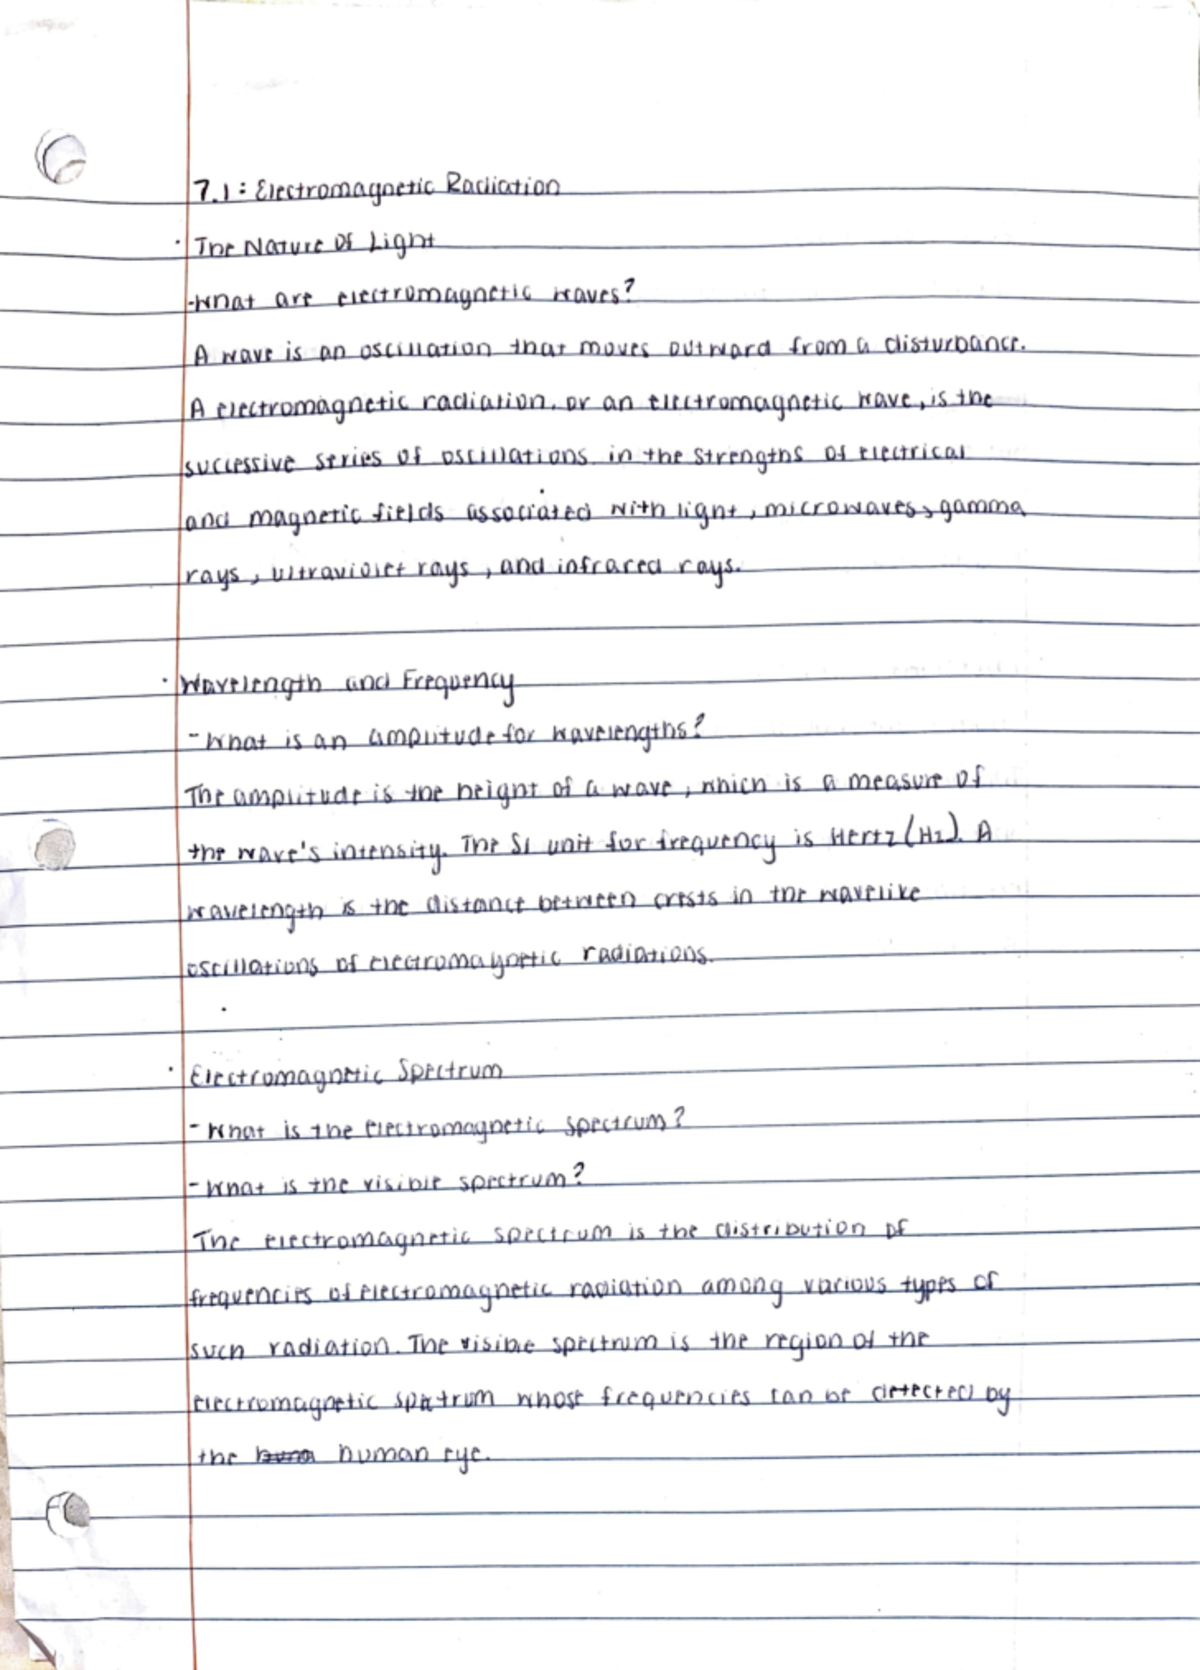 7.1: Electromagnetic Radiation
· The Nature of Light
-What are electromagnetic waves?
A wave is an oscillation that moves outward from a disturbance.
A electromagnetic radiation, or an electromagnetic wave, is the
successive series of oscillations in the strengths of electrical
and magnetic fields associated with light, microwaves, gamma
rays, ultraviolet rays, and infrared rays.
· Wavelength and Frequency
- What is an amplitude for wavelengths?
The amplitude is the height of a wave, which is a measure of
the wave's intensity. The SI unit for frequency is Hertz (Hz). A
wavelength is the distance between crests in the wavelike
oscillations of electromagnetic radiations.
· Electromagnetic Spectrum
- What is the electromagnetic spectrum?
- What is the visible spectrum?
The electromagnetic spectrum is the distribution of
frequencies of electromagnetic radiation among various types of
such radiation. The visible spectrum is the region of the
electromagnetic spectrum whose frequencies can be detected by
the human eye.